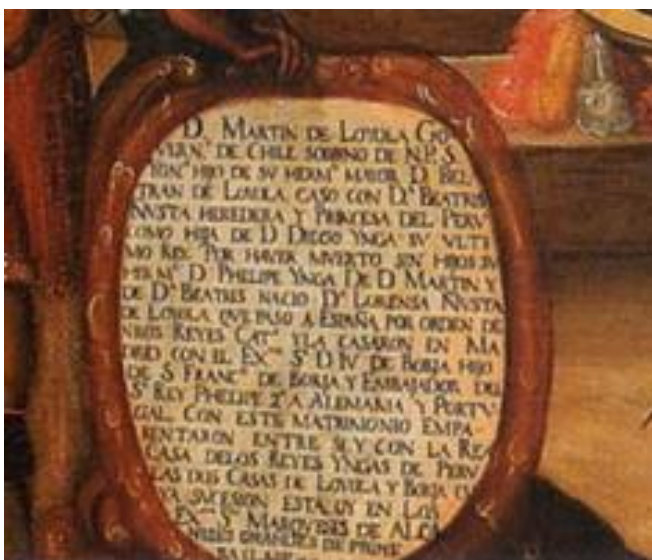 D. MARTIN DE LOYOLA GO
VERN.ᴿ DE CHILE SOBRINO DE N.P.S.
IGN.º HIJO DE SV HERM.º MAIOR D. BEL
TRAN DE LOYOLA CASO CON D.ª BEATRIS
ÑVSTA HEREDERA Y PRINCESA DEL PERV
COMO HIJA DE D DIEGO YNGA SV VLTI
MO REY. POR HAVER MVERTO SIN HIJOS SV
HERM.º D. PHELIPE YNGA DE D. MARTIN Y
DE D.ª BEATRIS NACIO D.ª LORENSA ÑVSTA
DE LOYOLA QVE PASO A ESPAÑA POR ORDEN DE
NROS REYES CAT.ˢ Y LA CASARON EN MA
DRID CON EL EX.ᵐᵒ S.ʳ D IV. DE BORJA HIJO
DE S. FRANC.º DE BORJA Y EMBAJADOR DEL
S.ʳ REY PHELIPE 2º A ALEMANIA Y PORTV
GAL. CON ESTE MATRIMONIO EMPA
RENTARON ENTRE SI, Y CON LA REA
CASA DELOS REYES YNGAS DE PERV
LAS DOS CASAS DE LOYOLA Y BORJA CV
YA SVCESION ESTA OY EN LOS
EX.ᵐᵒˢ S.ˢ MARQVESES DE ALCA
GRANDES DE PRIME